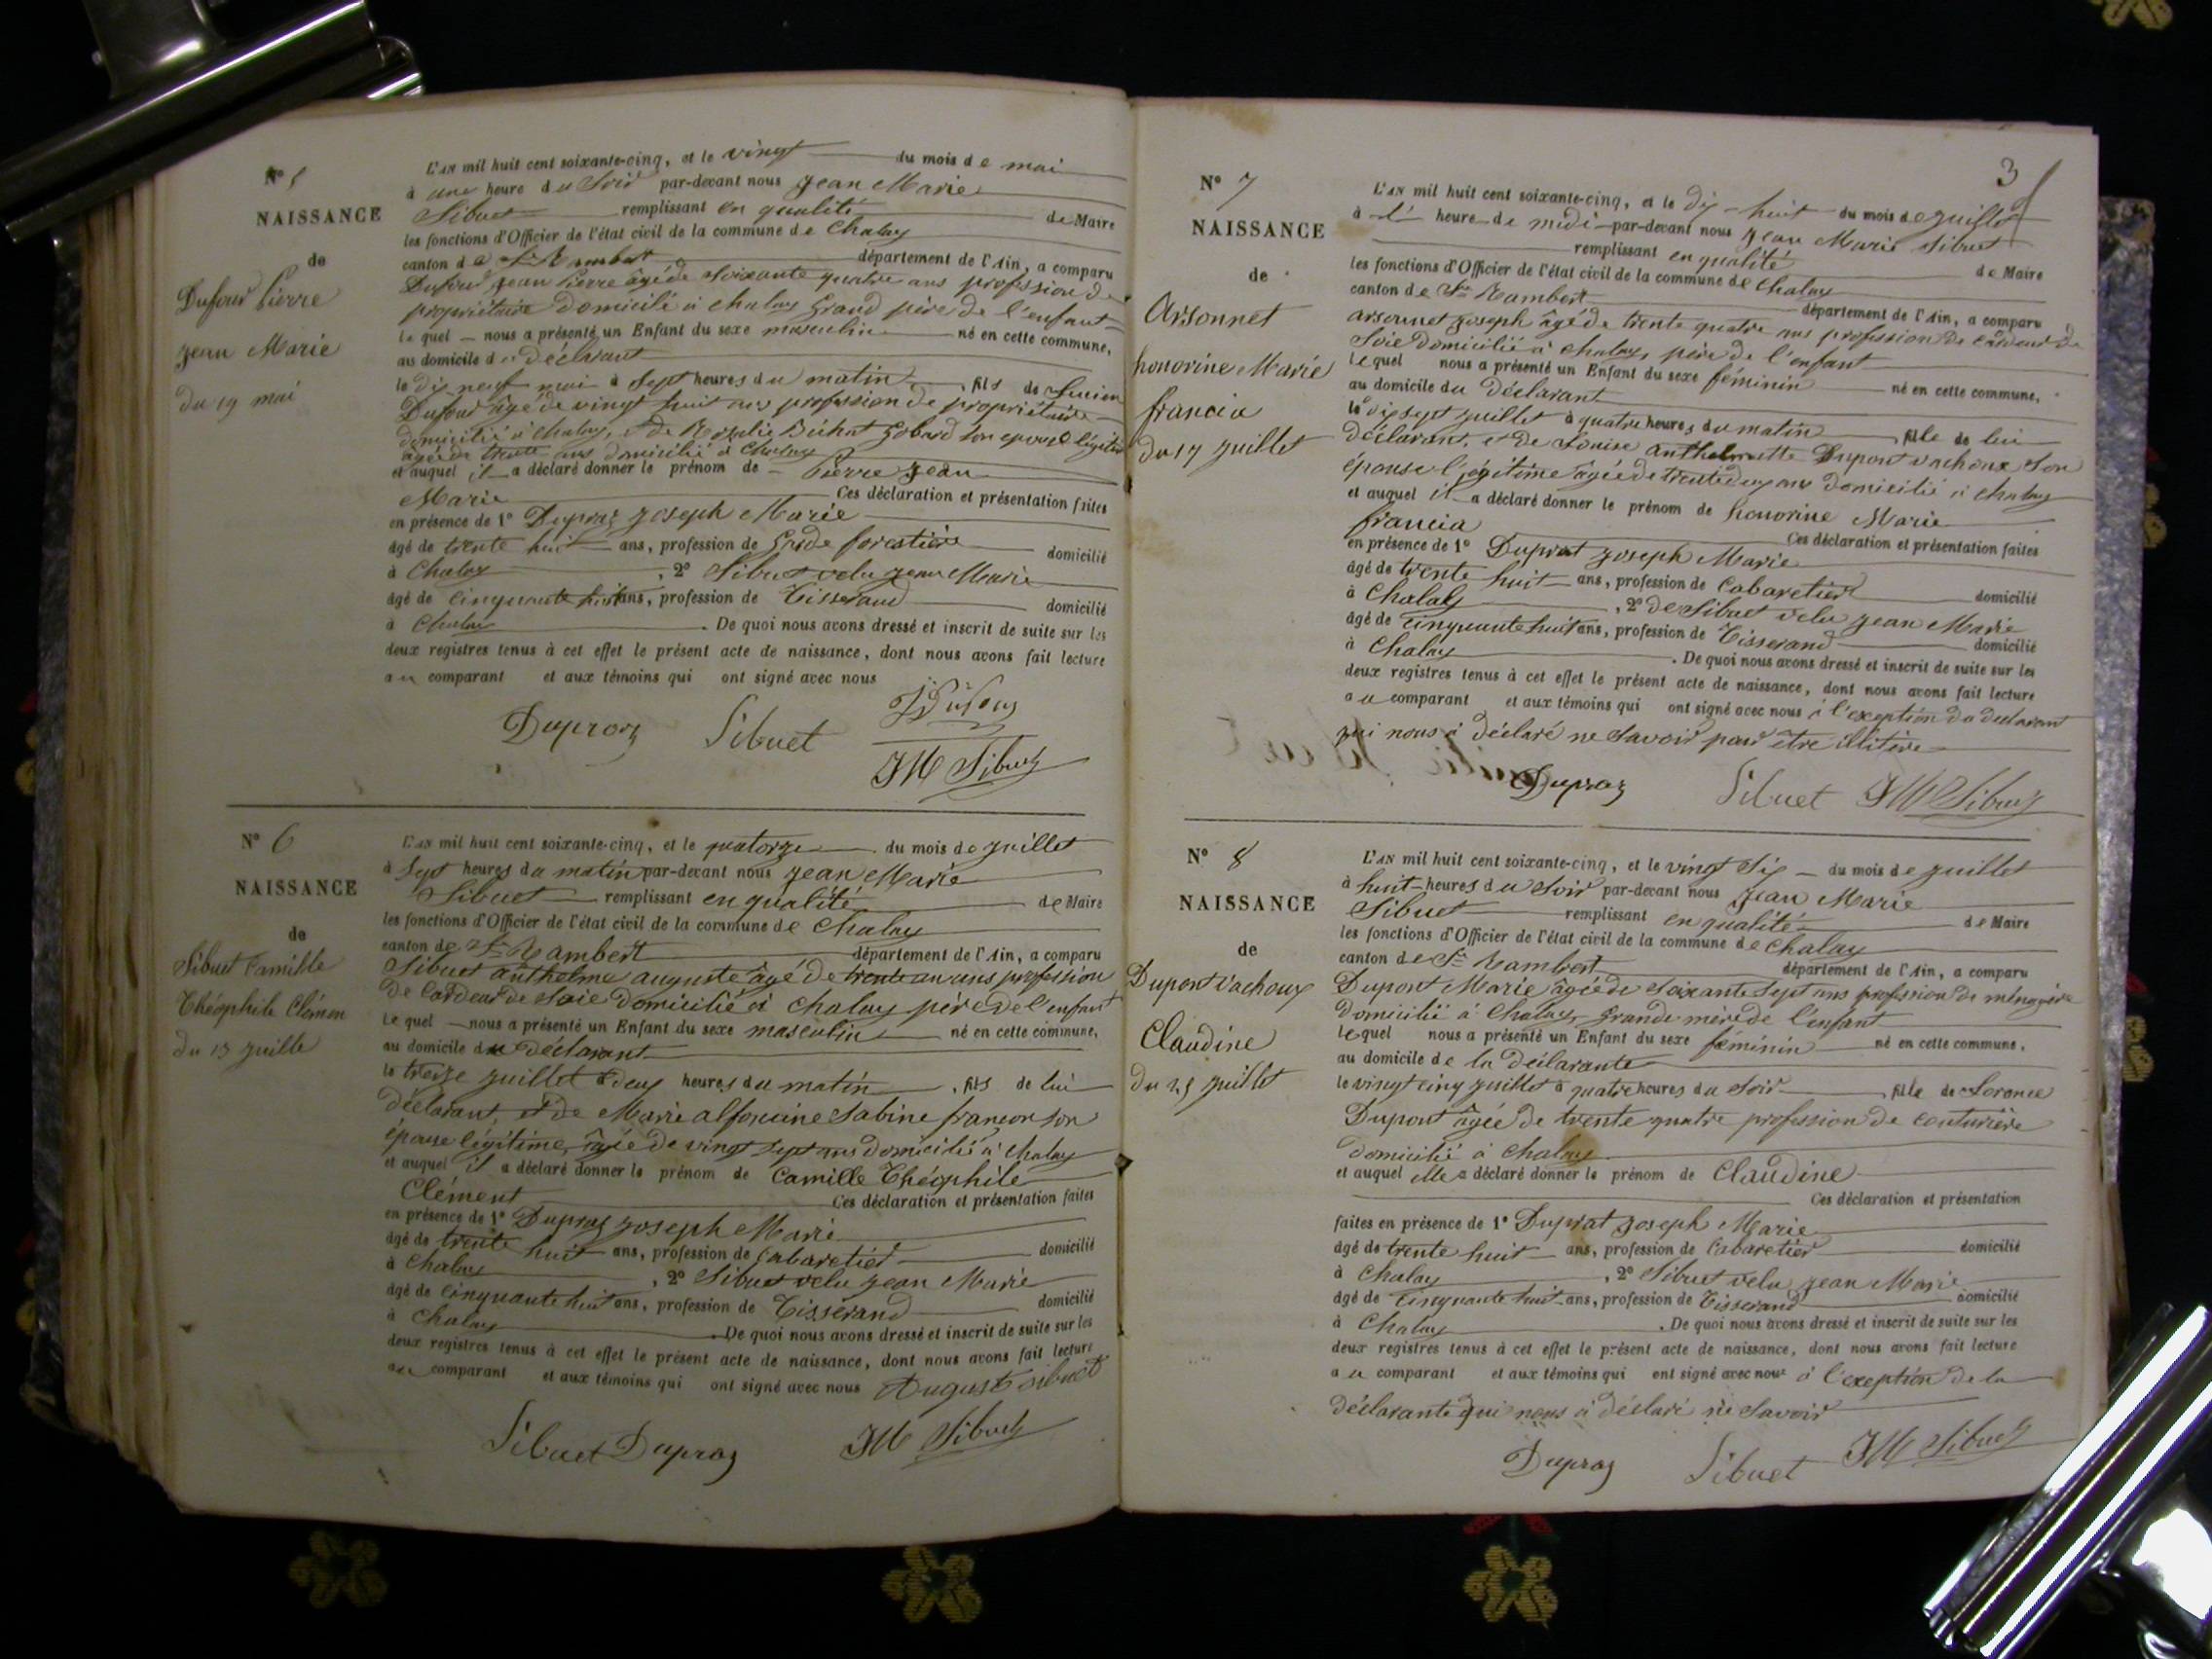 N° 5
NAISSANCE
de
Dufour Pierre
jean Marie
du 19 mai
L'AN mil huit cent soixante-cinq, et le vingt du mois de mai
à une heure du Soir par-devant nous jean Marie
Sibuet remplissant en qualité de Maire
les fonctions d'Officier de l'état civil de la commune de Chaley
canton de St Rambert département de l'Ain, a comparu
Dufour jean Pierre âgé de soixante quatre ans profession de
propriétaire domicilié à chaley Grand père de l'enfant
lequel nous a présenté un Enfant du sexe masculin né en cette commune,
au domicile du déclarant
le dix neuf mai à Sept heures du matin, fils de Lucien
Dufour âgé de vingt huit ans profession de propriétaire
domicilié à chaley, et de Rosalie Gobard son epouse légitime
âgée de trente ans domicilié à Chaley
et auquel il a déclaré donner le prénom de Pierre jean
Marie Ces déclaration et présentation faites
en présence de 1° Dupraz joseph Marie
âgé de trente huit ans, profession de Garde forestière domicilié
à Chaley, 2° Sibuet velu jean Marie
âgé de cinquante huit ans, profession de Tisserand domicilié
à Chaley. De quoi nous avons dressé et inscrit de suite sur les
deux registres tenus à cet effet le présent acte de naissance, dont nous avons fait lecture
au comparant et aux témoins qui ont signé avec nous
Dupraz Sibuet JDufour
JM Sibuet
N° 6
NAISSANCE
de
Sibuet Camille
Théophile Clémen
du 13 juille
L'AN mil huit cent soixante-cinq, et le quatorze du mois de juillet
à Sept heures du matin par-devant nous jean Marie
Sibuet remplissant en qualité de Maire
les fonctions d'Officier de l'état civil de la commune de Chaley
canton de St Rambert département de l'Ain, a comparu
Sibuet anthelme auguste âgé de trente un ans profession
de Cardeur de Soie domicilié à chaley père de l'enfant
lequel nous a présenté un Enfant du sexe masculin né en cette commune,
au domicile du déclarant
le treize juillet à deux heures du matin, fils de lui
déclarant et de Marie alfonsine Sabine françon son
épouse légitime, âgée de vingt sept ans domicilié à chaley
et auquel il a déclaré donner le prénom de Camille Théophile
Clément Ces déclaration et présentation faites
en présence de 1° Dupraz joseph Marie
âgé de trente huit ans, profession de Cabaretier domicilié
à Chaley, 2° Sibuet velu jean Marie
âgé de cinquante huit ans, profession de Tisserand domicilié
à Chaley. De quoi nous avons dressé et inscrit de suite sur les
deux registres tenus à cet effet le présent acte de naissance, dont nous avons fait lecture
au comparant et aux témoins qui ont signé avec nous August Sibuet
Sibuet Dupraz JM Sibuet
3
N° 7
NAISSANCE
de
Arsonnet
honorine Marie
francia
du 17 juillet
L'AN mil huit cent soixante-cinq, et le dix-huit du mois de juillet
à l' heure de midi par-devant nous jean Marie Sibuet
remplissant en qualité de Maire
les fonctions d'Officier de l'état civil de la commune de Chaley
canton de St Rambert département de l'Ain, a comparu
arsonnet joseph âgé de trente quatre ans profession de Cardeur de
Soie domicilié à chaley, père de l'enfant
lequel nous a présenté un Enfant du sexe féminin né en cette commune,
au domicile du déclarant
le dix sept juillet à quatre heures du matin, fille de lui
déclarant, et de Louise anthelmette Dupont vachoux Son
épouse légitime âgée de trente deux ans domicilié à chaley
et auquel il a déclaré donner le prénom de honorine Marie
francia Ces déclaration et présentation faites
en présence de 1° Duprat joseph Marie
âgé de trente huit ans, profession de Cabaretier domicilié
à Chaley, 2° de Sibuet velu jean Marie
âgé de cinquante huit ans, profession de Tisserand domicilié
à Chaley. De quoi nous avons dressé et inscrit de suite sur les
deux registres tenus à cet effet le présent acte de naissance, dont nous avons fait lecture
au comparant et aux témoins qui ont signé avec nous à l'exception du déclarant
qui nous à déclaré ne Savoir pour être illitére
Dupraz Sibuet JM Sibuet
N° 8
NAISSANCE
de
Dupont Vachoux
Claudine
du 25 juillet
L'AN mil huit cent soixante-cinq, et le vingt Six du mois de juillet
à huit heures du Soir par-devant nous jean Marie
Sibuet remplissant en qualité de Maire
les fonctions d'Officier de l'état civil de la commune de Chaley
canton de St Rambert département de l'Ain, a comparu
Dupont Marie âgée de soixante Sept ans profession de ménagère
domicilié à Chaley, Grande mère de l'enfant
lequel nous a présenté un Enfant du sexe féminin né en cette commune.
au domicile de la déclarante
le vingt cinq juillet à quatre heures du Soir, fille de Lorence
Dupont âgée de trente quatre profession de couturière
domicilié à Chaley
et auquel elle a déclaré donner le prénom de Claudine
Ces déclaration et présentation
faites en présence de 1° Duprat joseph Marie
âgé de trente huit ans, profession de Cabaretier domicilié
à Chaley, 2° Sibuet velu jean Marie
âgé de cinquante huit ans, profession de Tisserand domicilié
à Chaley. De quoi nous avons dressé et inscrit de suite sur les
deux registres tenus à cet effet le présent acte de naissance, dont nous avons fait lecture
au comparant et aux témoins qui ont signé avec nous à l'exeption de la
déclarante qui nous à déclaré ne Savoir
Dupraz Sibuet JM Sibuet